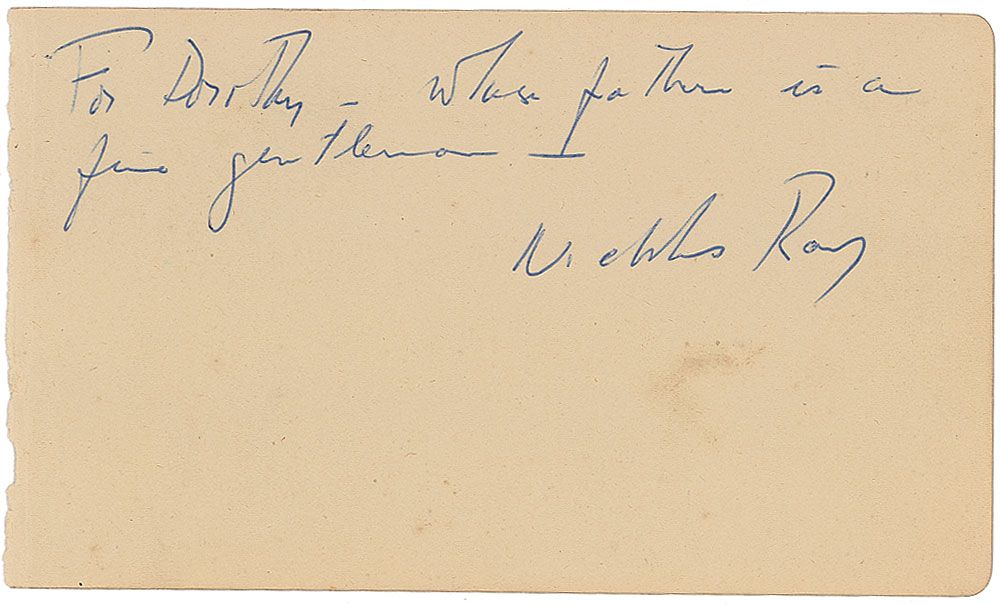 For Dorothy – whose father is a
fine gentleman –
Nicholas Ray